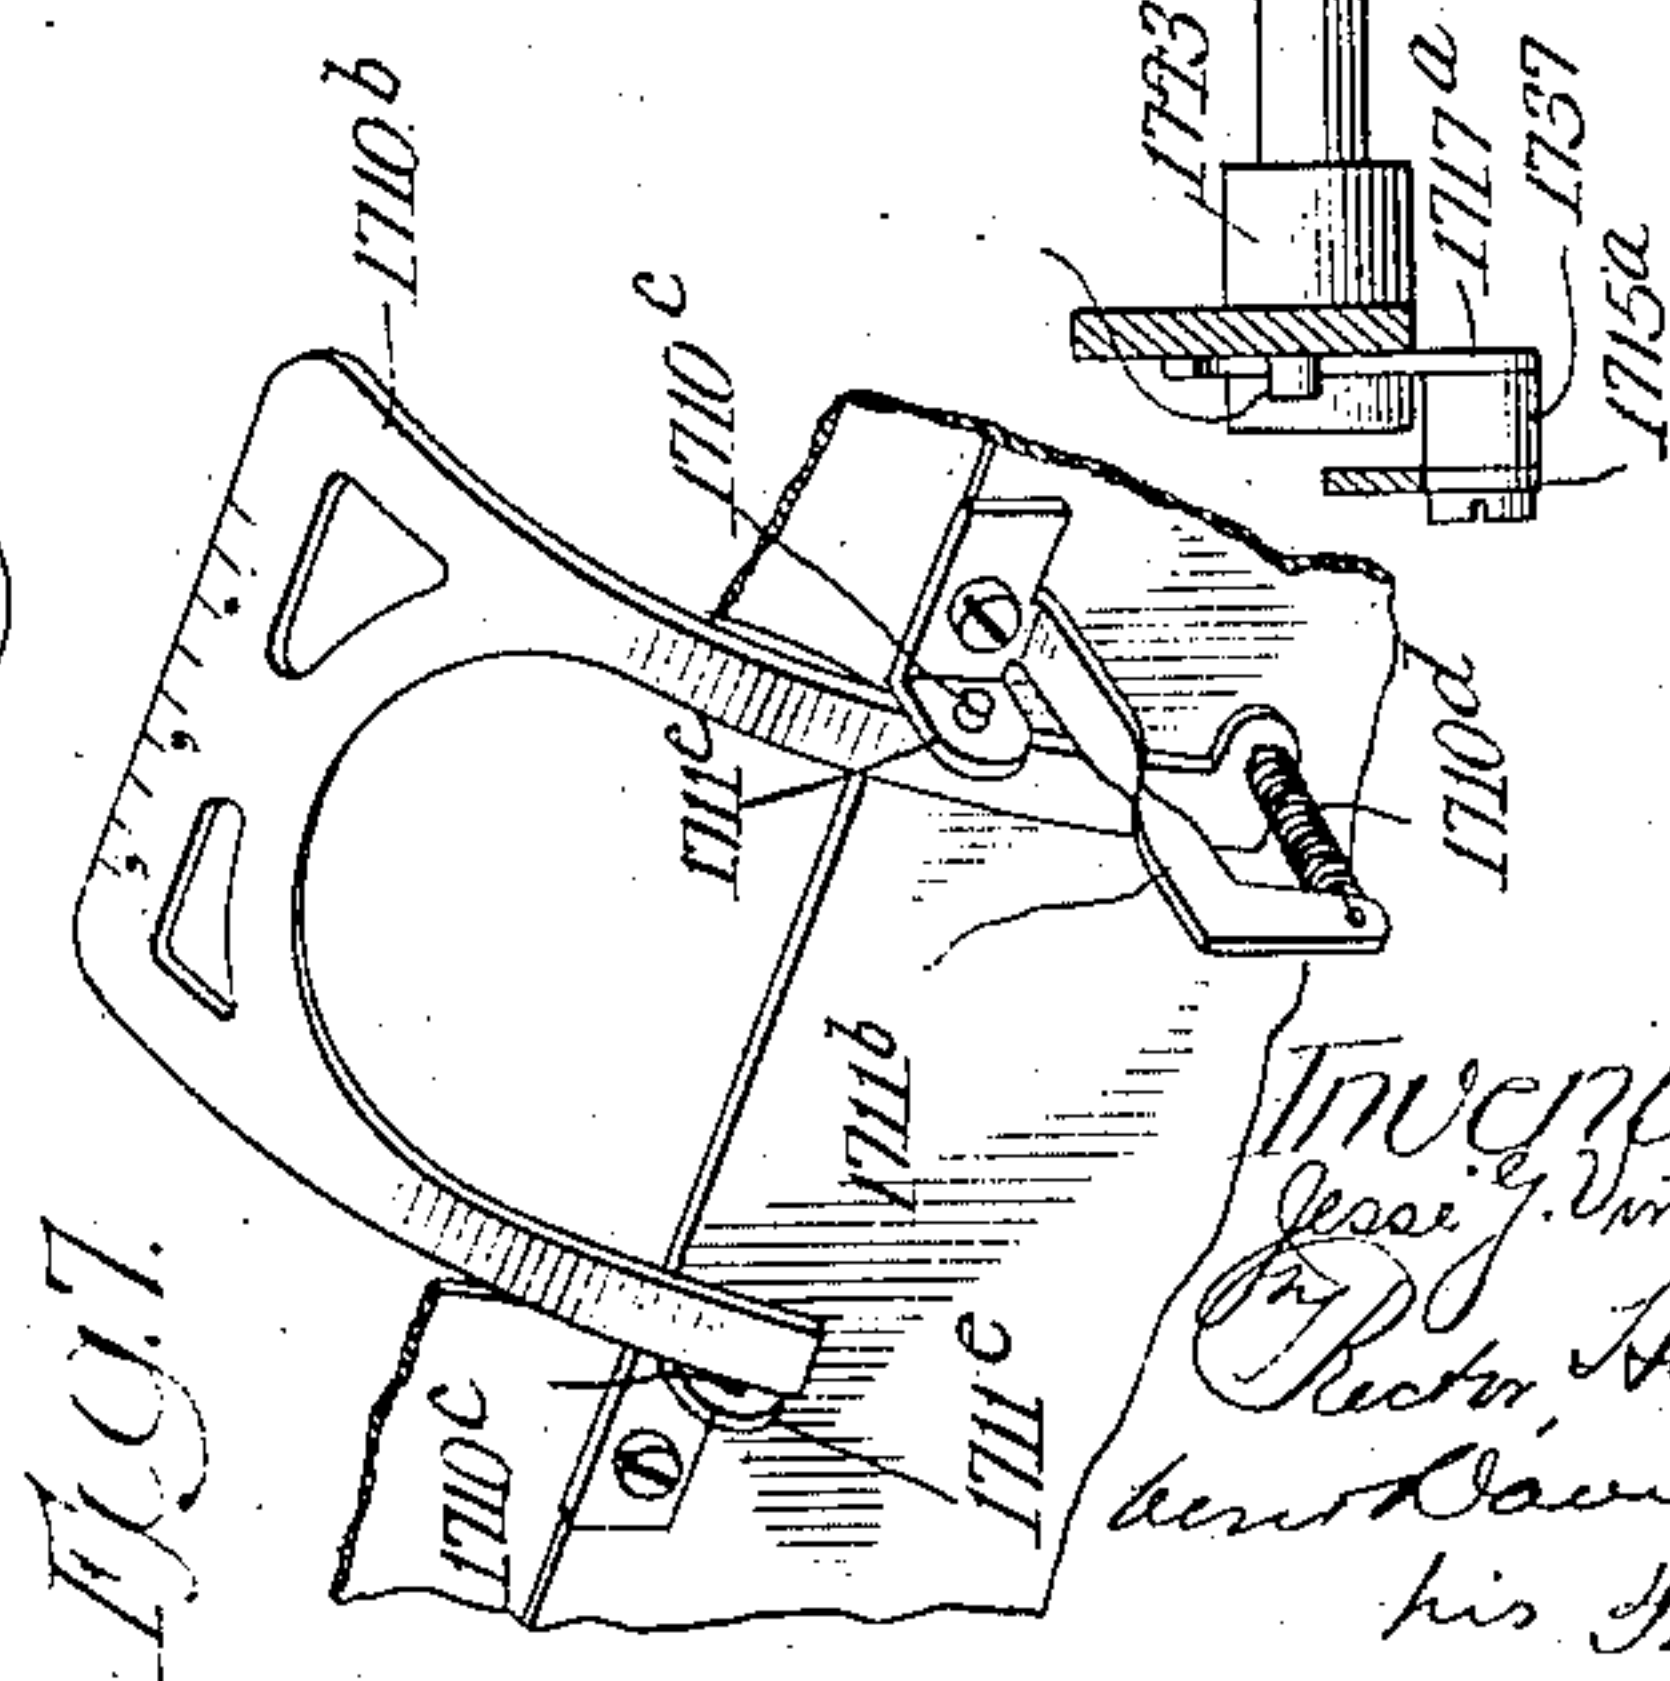 Fig. 7.
1710b
1710c
1711c
1711b
1710d
1710c
1711e
1773
1717a
1737
1715a
Inven
Jesse G. Vin
By
Rector,
Davi
his